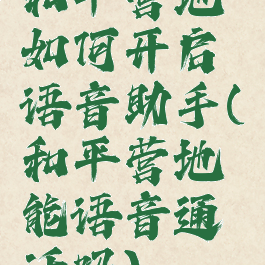 和平营地
如何开启
语音助手(
和平营地
能语音通
话吗)